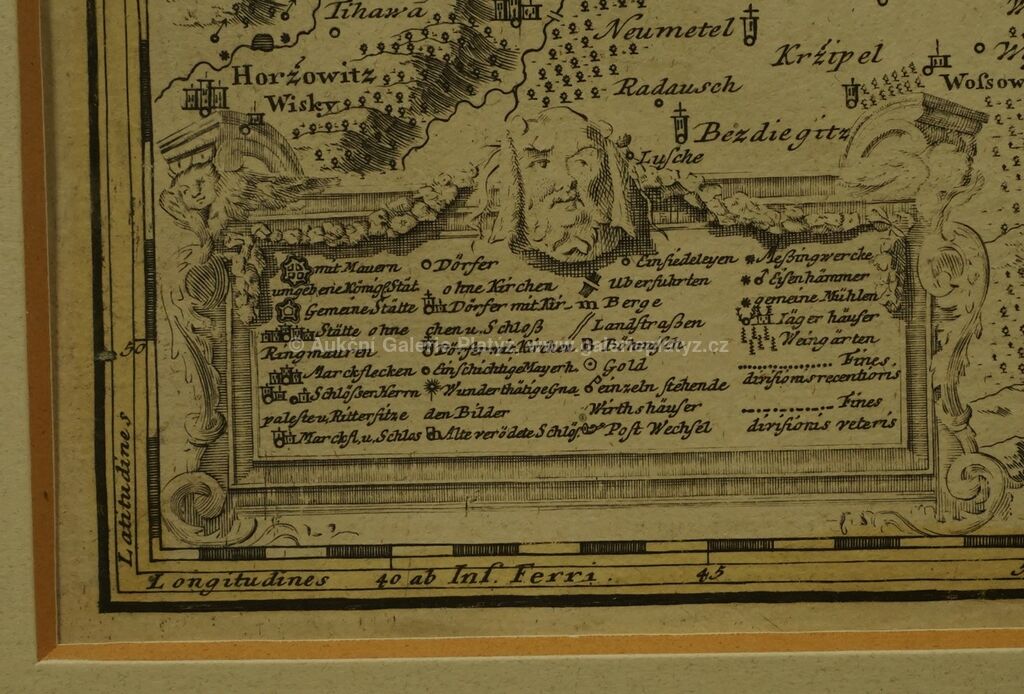 Tihawā
Neumetel
Kržipel
Horžowitz
Wisky
Radausch
Wolsow
Bezdiegitz
Lusche
mit Mauern
umgebene Königl Stät
Gemeine Stätte
Stätte ohne
Ringmauren
Marckflecken
Schlösser Herrn
paleste u. Rittersitze
Marckfl. u. Schlos
Dörfer
ohne Kirchen
Dörfer mit Kir-
chen u. Schloß
Dörfer mit Kirchen
Einschichtige Mayerh.
Wunderthätige Gna
den Bilder
Alte verödete Schlös
Einsiedeleyen
Uberfuhrten
m Berge
Landstraßen
B Böhmisch
Gold
einzeln stehende
Wirthshäuser
Post Wechsel
Meßingwercke
Eisenhämmer
gemeine Mühlen
Jäger häuser
Weingärten
Fines
divisionis recentioris
Fines
divisionis veteris
© Aukční Galerie Platýz, www.galerieplatyz.cz
50
Latitudines
Longitudines 40 ab Ins. Ferri. 45